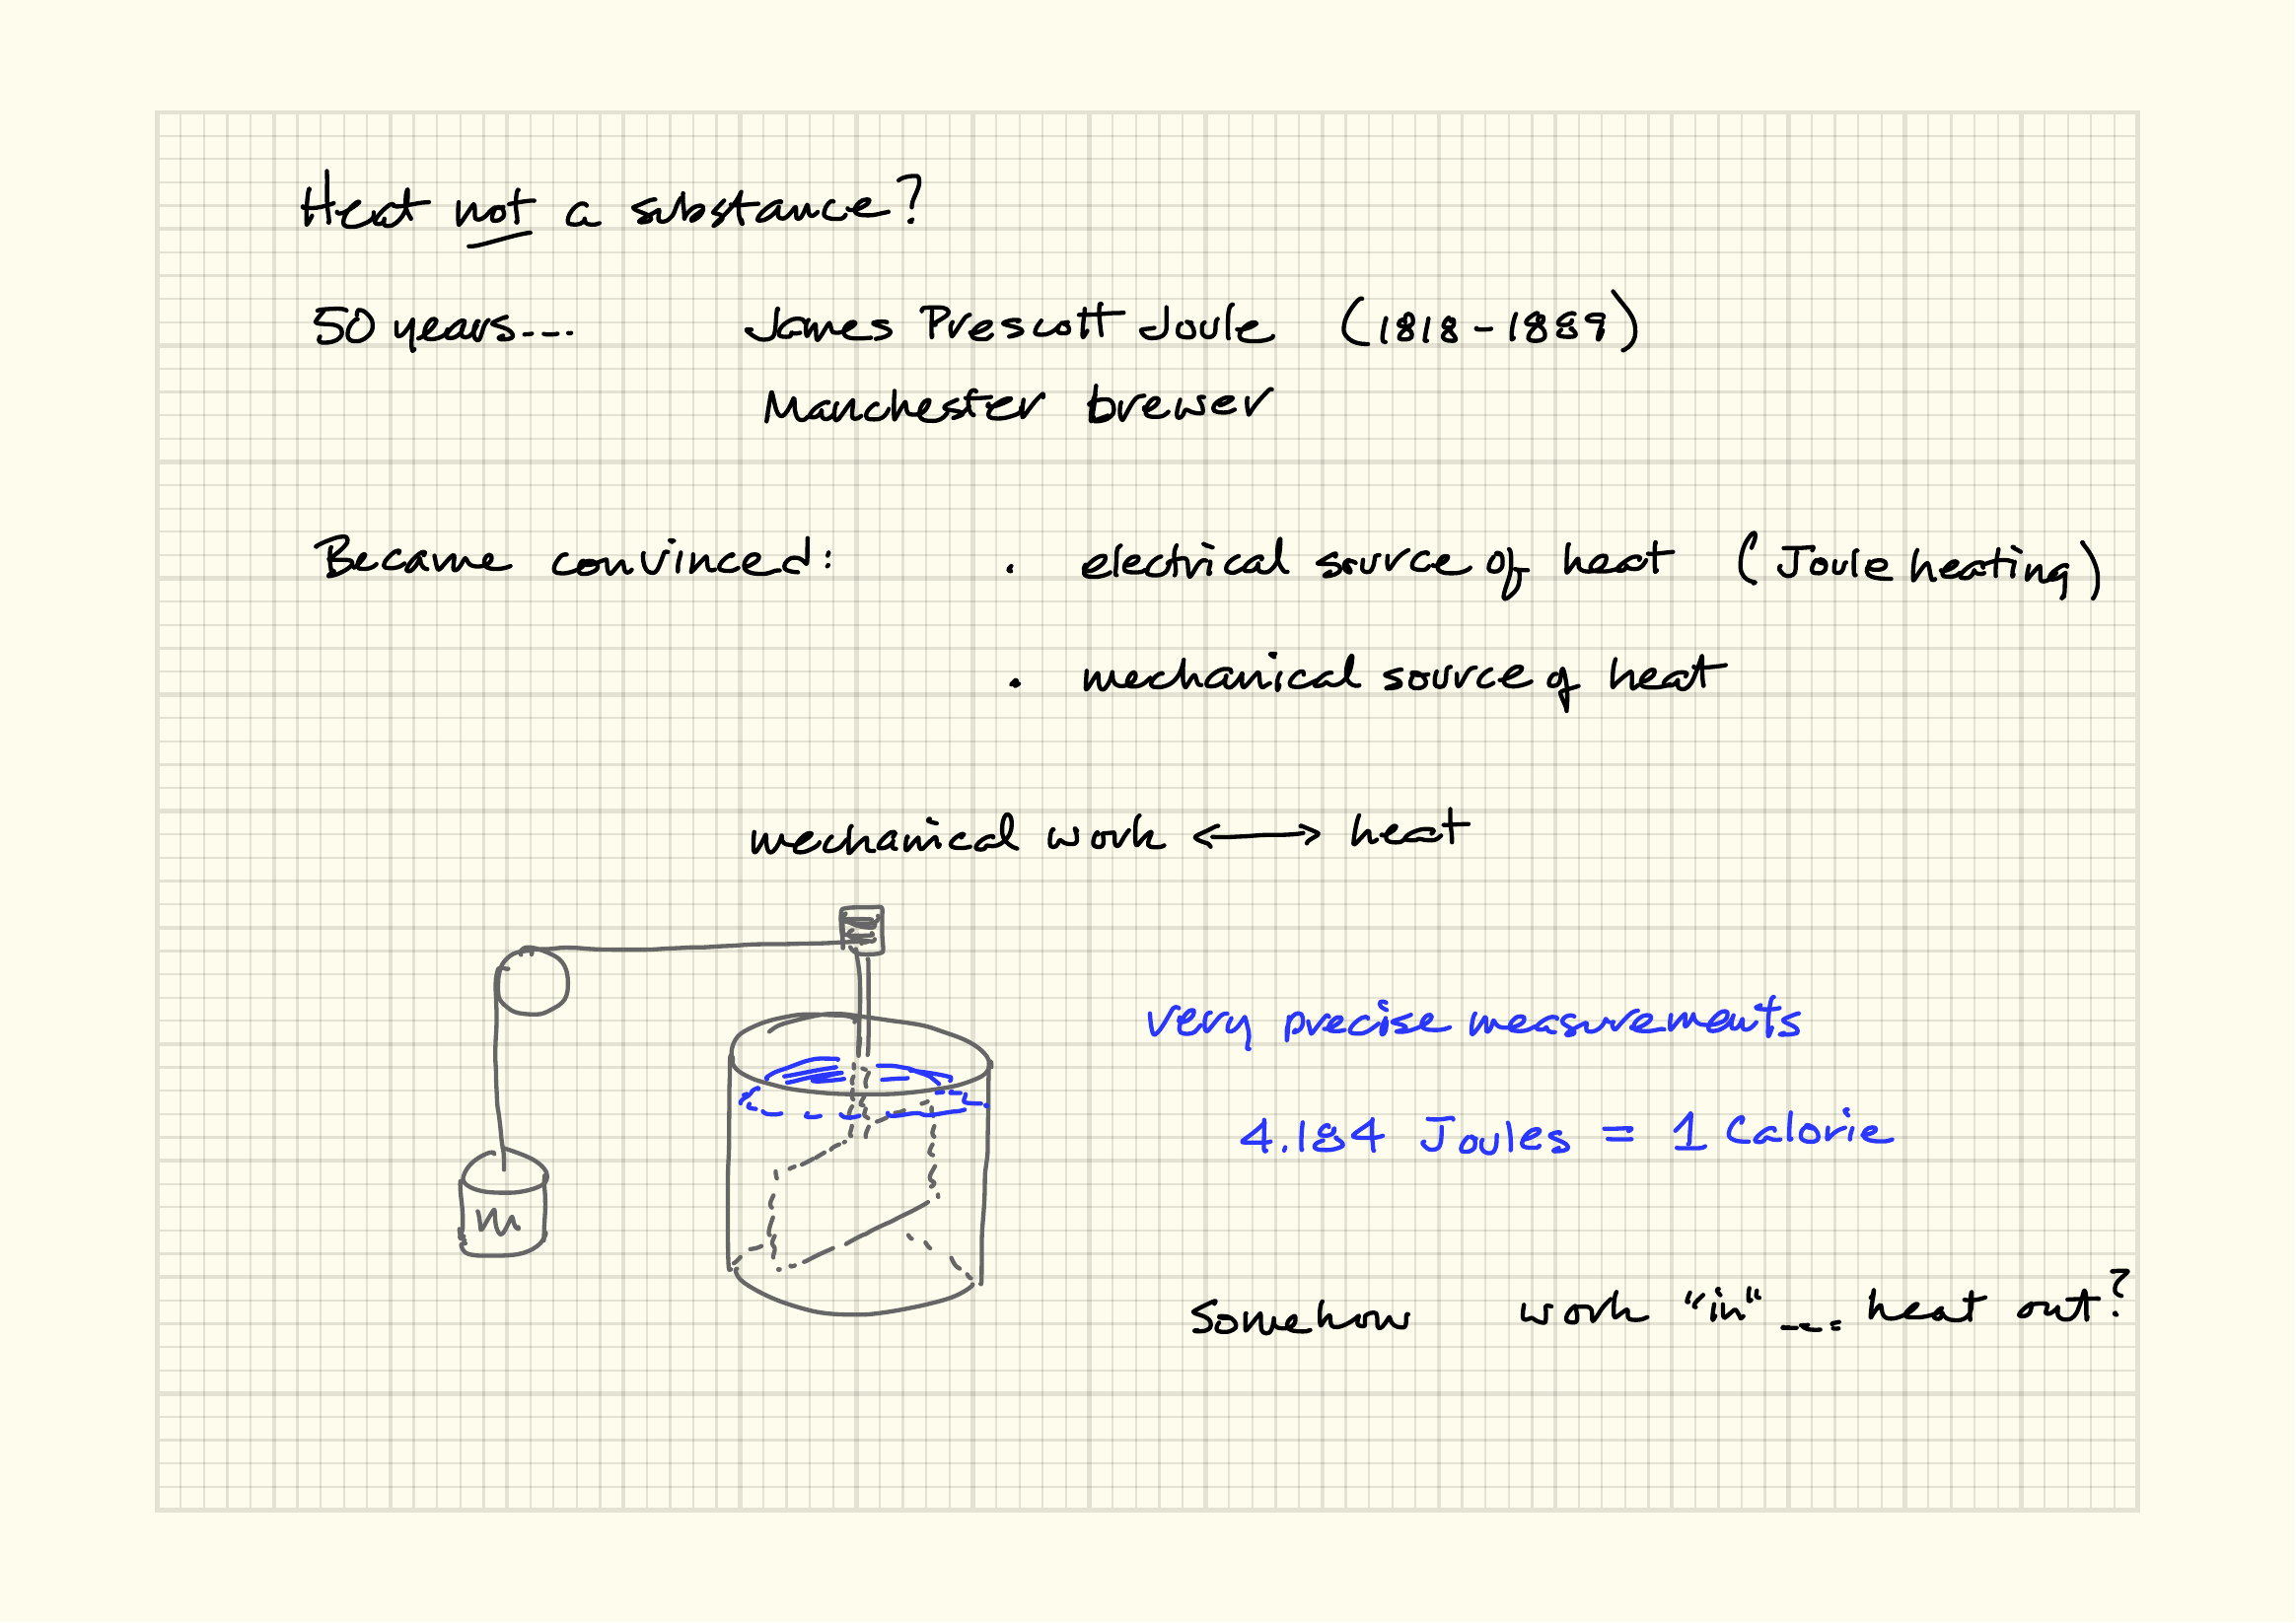 Heat not a substance?
50 years--- James Prescott Joule (1818-1889)
Manchester brewer
Became convinced: · electrical source of heat (Joule heating)
· mechanical source of heat
mechanical work ⟷ heat
very precise measurements
4.184 Joules = 1 Calorie
m
Somehow work "in" --- heat out?